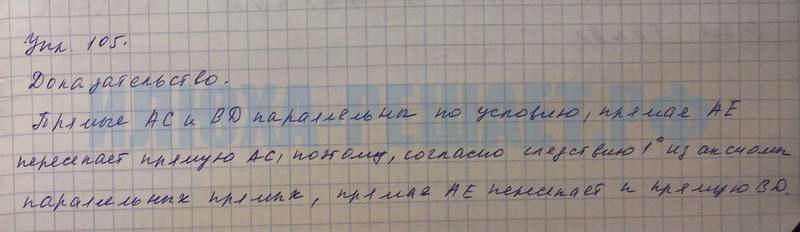 Упр. 105.
Доказательство.
Прямые AC и BD параллельны по условию, прямая AE
пересекает прямую AC, поэтому, согласно следствию 1° из аксиомы
параллельных прямых, прямая AE пересекает и прямую BD.
ИЛЮХА РЕШАЕТ.РФ